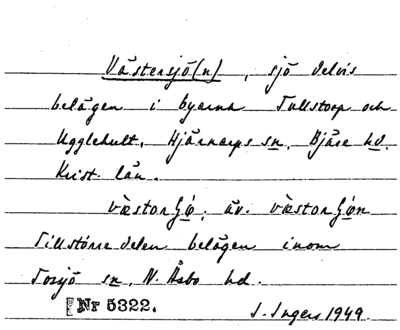 Västersjö(n), sjö delvis
belägen i byarna Tullstorp och
Ugglehult, Hjärnarps sn, Bjäre hd.
Krist. län.
Till större delen belägen inom
Torsjö sn, N. Åsbo hd.
Nr 5322. I. Ingers 1949.